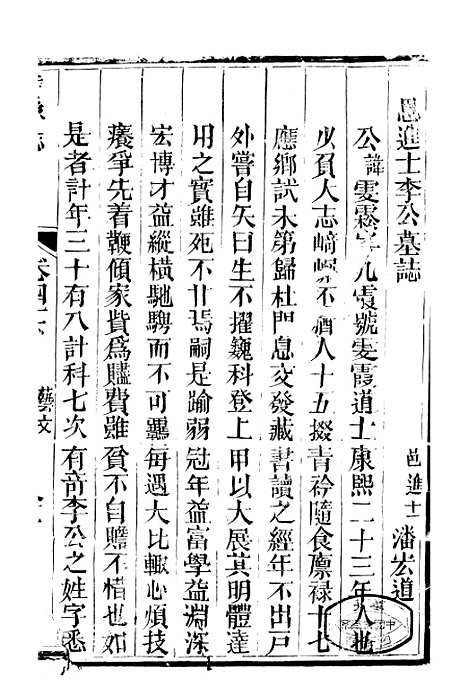 恩進士李公墓誌
邑進士潘宏道
公諱雯霦字九霞號雯霞道士康熙二十三年人也
少負人志﨑嶼不猶人十五掇青衿隨食廪禄十七
應鄉試未第歸杜門息交發藏書讀之經年不出戸
外嘗自矢曰生不擢巍科登上甲以大展其明體達
用之實雖死不甘焉嗣是踰弱冠年益富學益淵深
宏博才益縱橫馳騁而不可羈每遇大比輒心煩技
癢爭先着鞭傾家貲爲贐費雖貧不自贍不惜也如
是者計年三十有八計科七次有奇李公之姓字悉
志
藝文